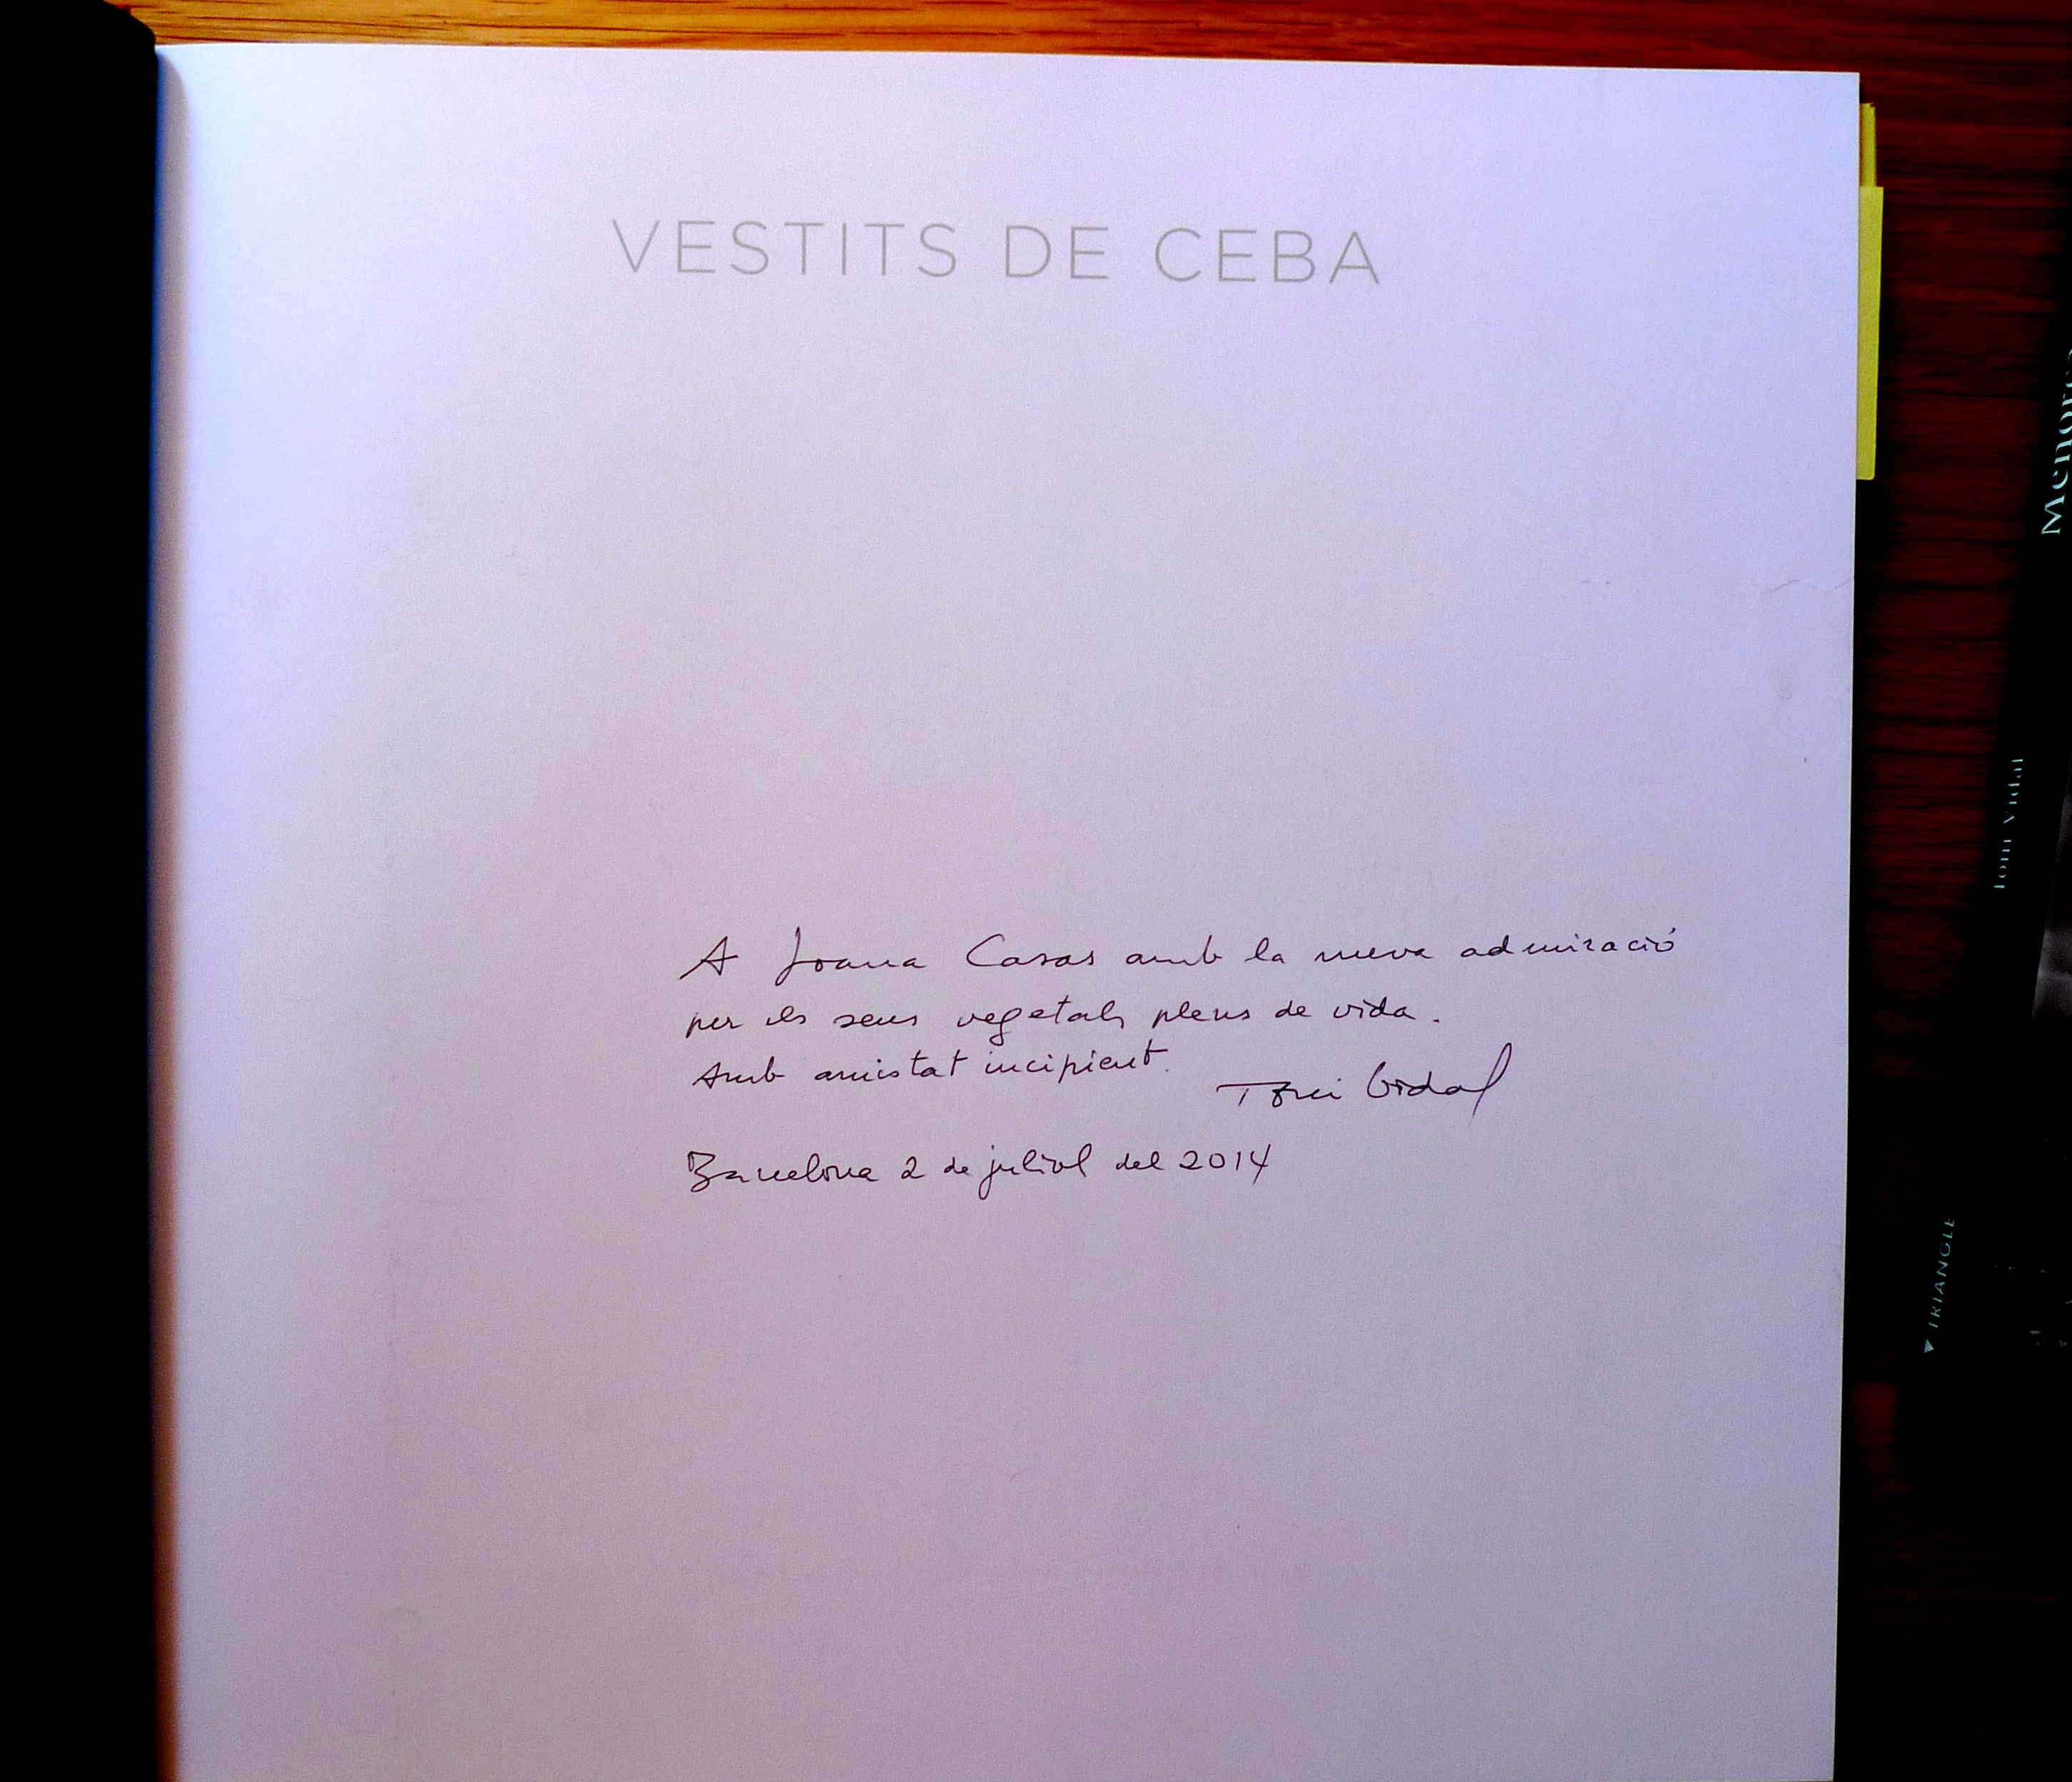 VESTITS DE CEBA
A Joana Casas amb la meva admiració
per els seus vegetals plens de vida.
Amb amistat incipient.
Toni Vidal
Barcelona 2 de juliol del 2014
Toni Vidal
TRIANGLE